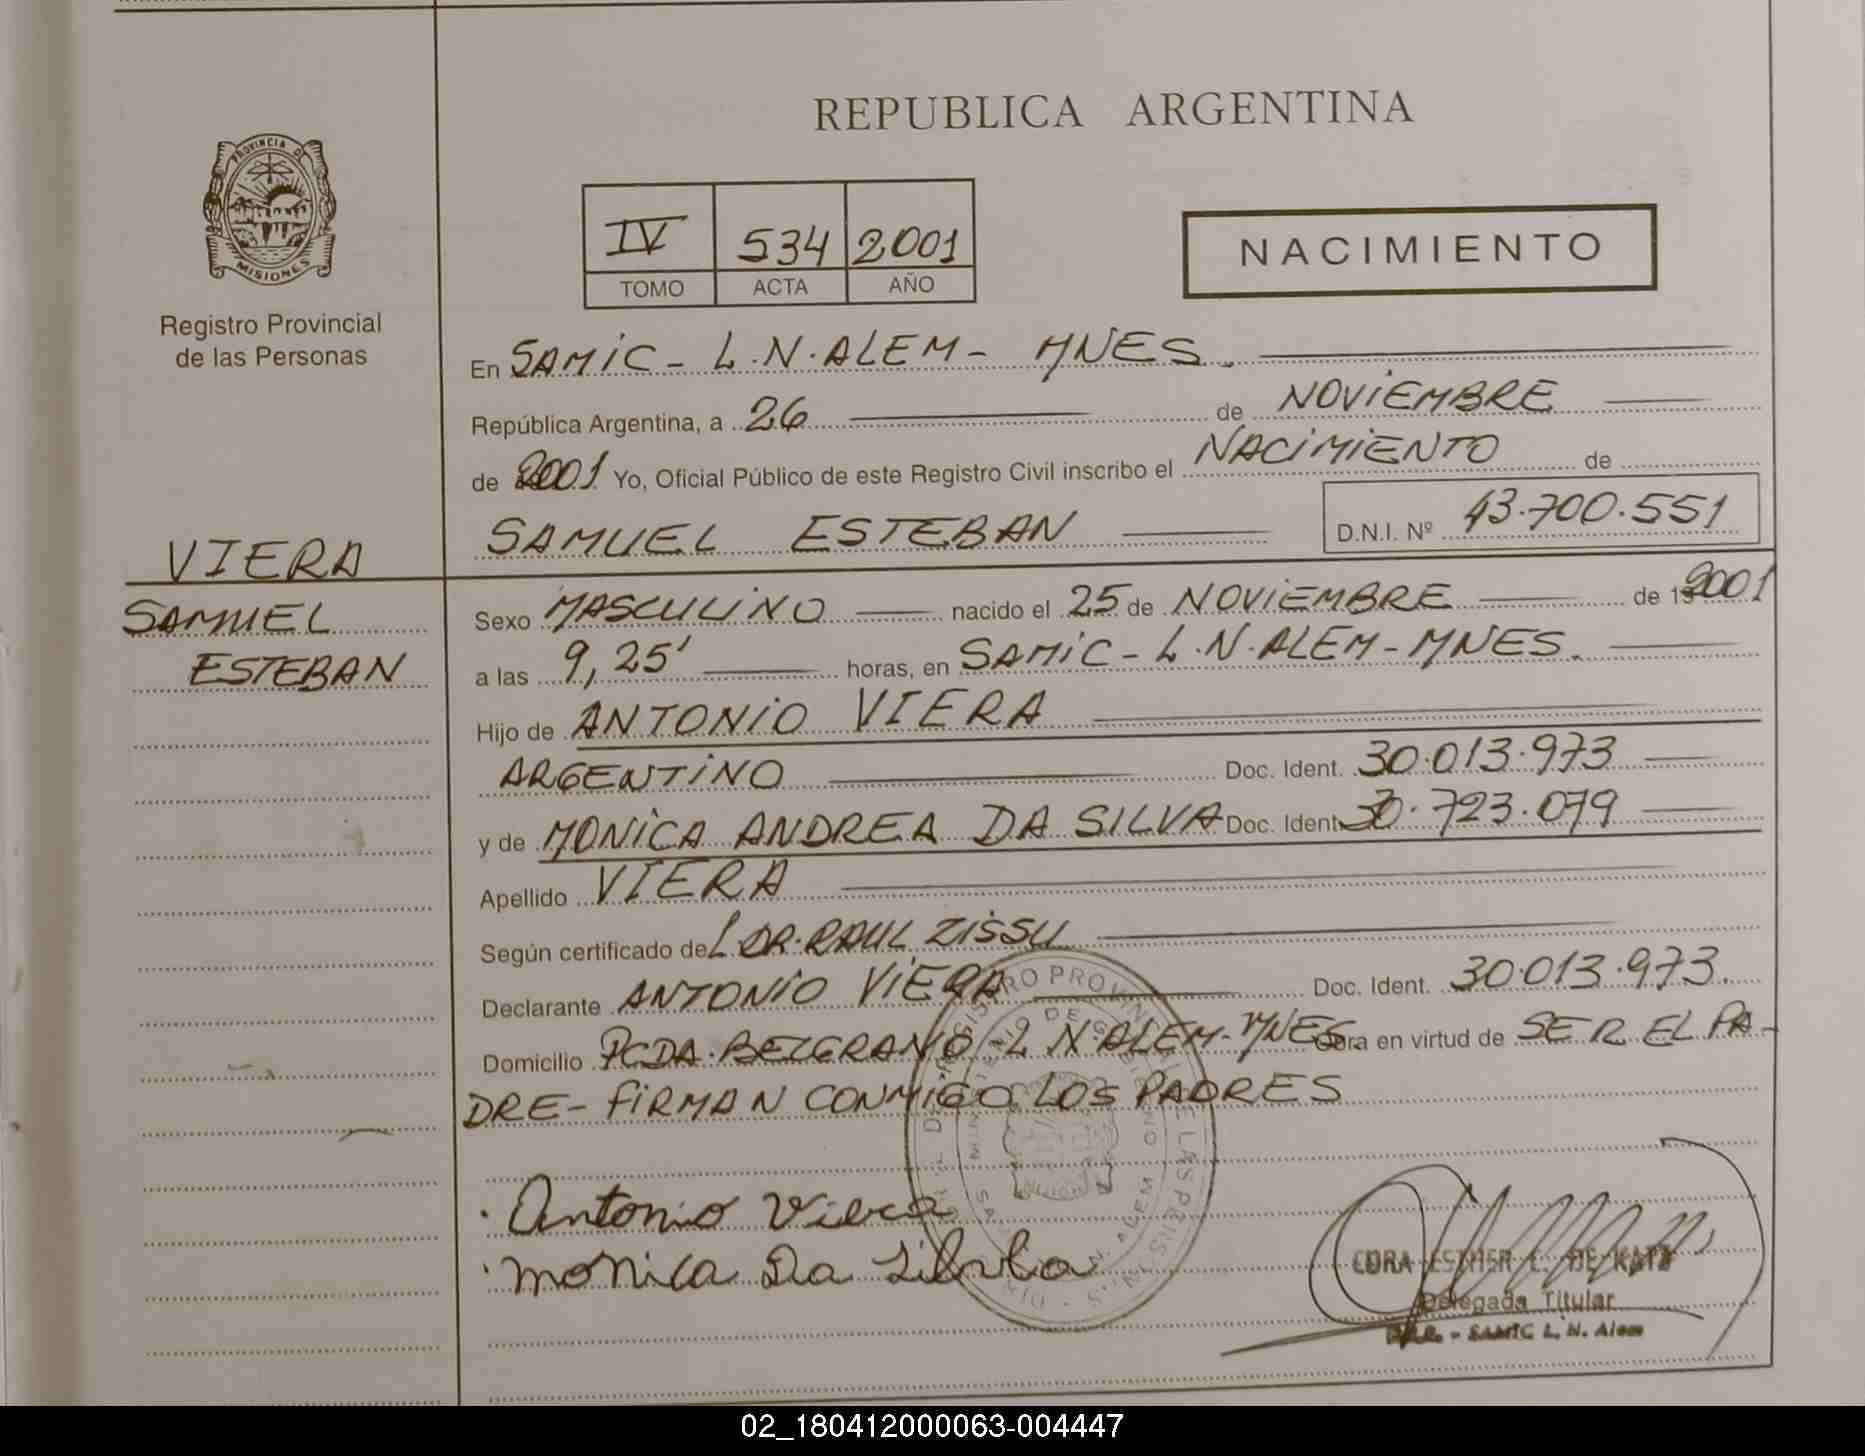 REPUBLICA ARGENTINA
PROVINCIA DE
MISIONES
Registro Provincial
de las Personas
IV 534 2001
TOMO ACTA AÑO
NACIMIENTO
En SAMIC - L.N. ALEM - MNES.
República Argentina, a 26 de NOVIEMBRE
de 2001 Yo, Oficial Público de este Registro Civil inscribo el NACIMIENTO de
SAMUEL ESTEBAN D.N.I. Nº 43.700.551
VIERA
SAMUEL
ESTEBAN
Sexo MASCULINO nacido el 25 de NOVIEMBRE de 2001
a las 9,25' horas, en SAMIC - L.N. ALEM - MNES.
Hijo de ANTONIO VIERA
ARGENTINO Doc. Ident. 30.013.973
y de MONICA ANDREA DA SILVA Doc. Ident. 30.723.079
Apellido VIERA
Según certificado del DR. RAUL ZISSU
Declarante ANTONIO VIERA Doc. Ident. 30.013.973.
Domicilio PCDA. BELGRANO - L N ALEM - MNES. Obra en virtud de SER EL PA-
DRE - FIRMAN CONMIGO LOS PADRES
Antonio Viera
Monica Da Silva
CORA ESTHER L. DE KATZ
Delegada Titular
SAMIC L. N. Alem
02_180412000063-004447